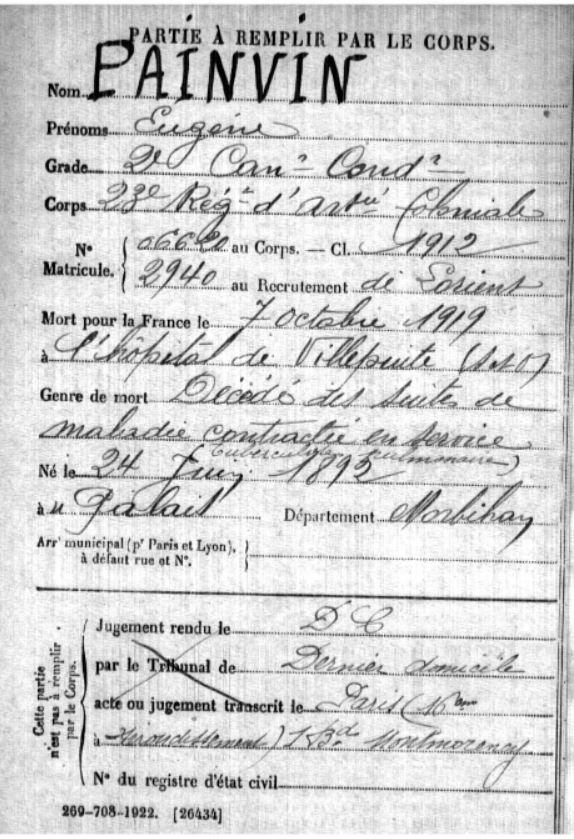 PARTIE À REMPLIR PAR LE CORPS.
Nom PAINVIN
Prénoms Eugène
Grade 2e Can.r Cond.r
Corps 23e Rég.t d'art.ie Coloniale
N° Matricule. { au Corps. — Cl. 1912
2940 au Recrutement de Lorient
Mort pour la France le 7 octobre 1919
à l'hôpital de Villepinte (S&O)
Genre de mort Décédé des suites de
maladie contractée en service
(tuberculose pulmonaire)
Né le 24 Juin 1892
à Palais Département Morbihan
Arrt municipal (pr Paris et Lyon), à défaut rue et N°. }
Cette partie n'est pas à remplir par le Corps. {
Jugement rendu le D C
par le Tribunal de Dernier domicile
acte ou jugement transcrit le Paris (16em
à arrondissement) Bd Montmorency
N° du registre d'état civil
269-708-1922. [26434]